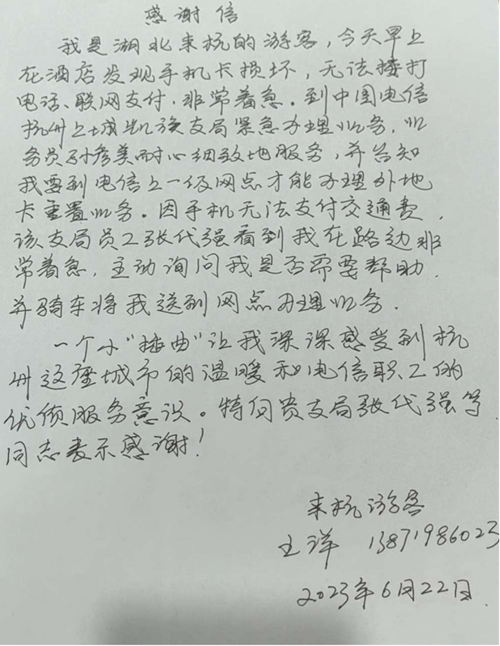 感谢信
我是湖北来杭的游客,今天早上
在酒店发现手机卡损坏,无法接打
电话、联网支付.非常着急.到中国电信
杭州上城凯旋支局紧急办理业务,业
务员孙彦美耐心细致地服务,并告知
我要到电信上一级网点才能办理外地
卡重置业务.因手机无法支付交通费,
该支局员工张代强看到我在路边非
常着急,主动询问我是否需要帮助.
并骑车将我送到网点办理业务.
一个小"插曲"让我深深感受到杭
州这座城市的温暖和电信职工的
优质服务意识。特向贵支局张代强等
同志表示感谢!
来杭游客
王洋 13871986023
2023年6月22日.